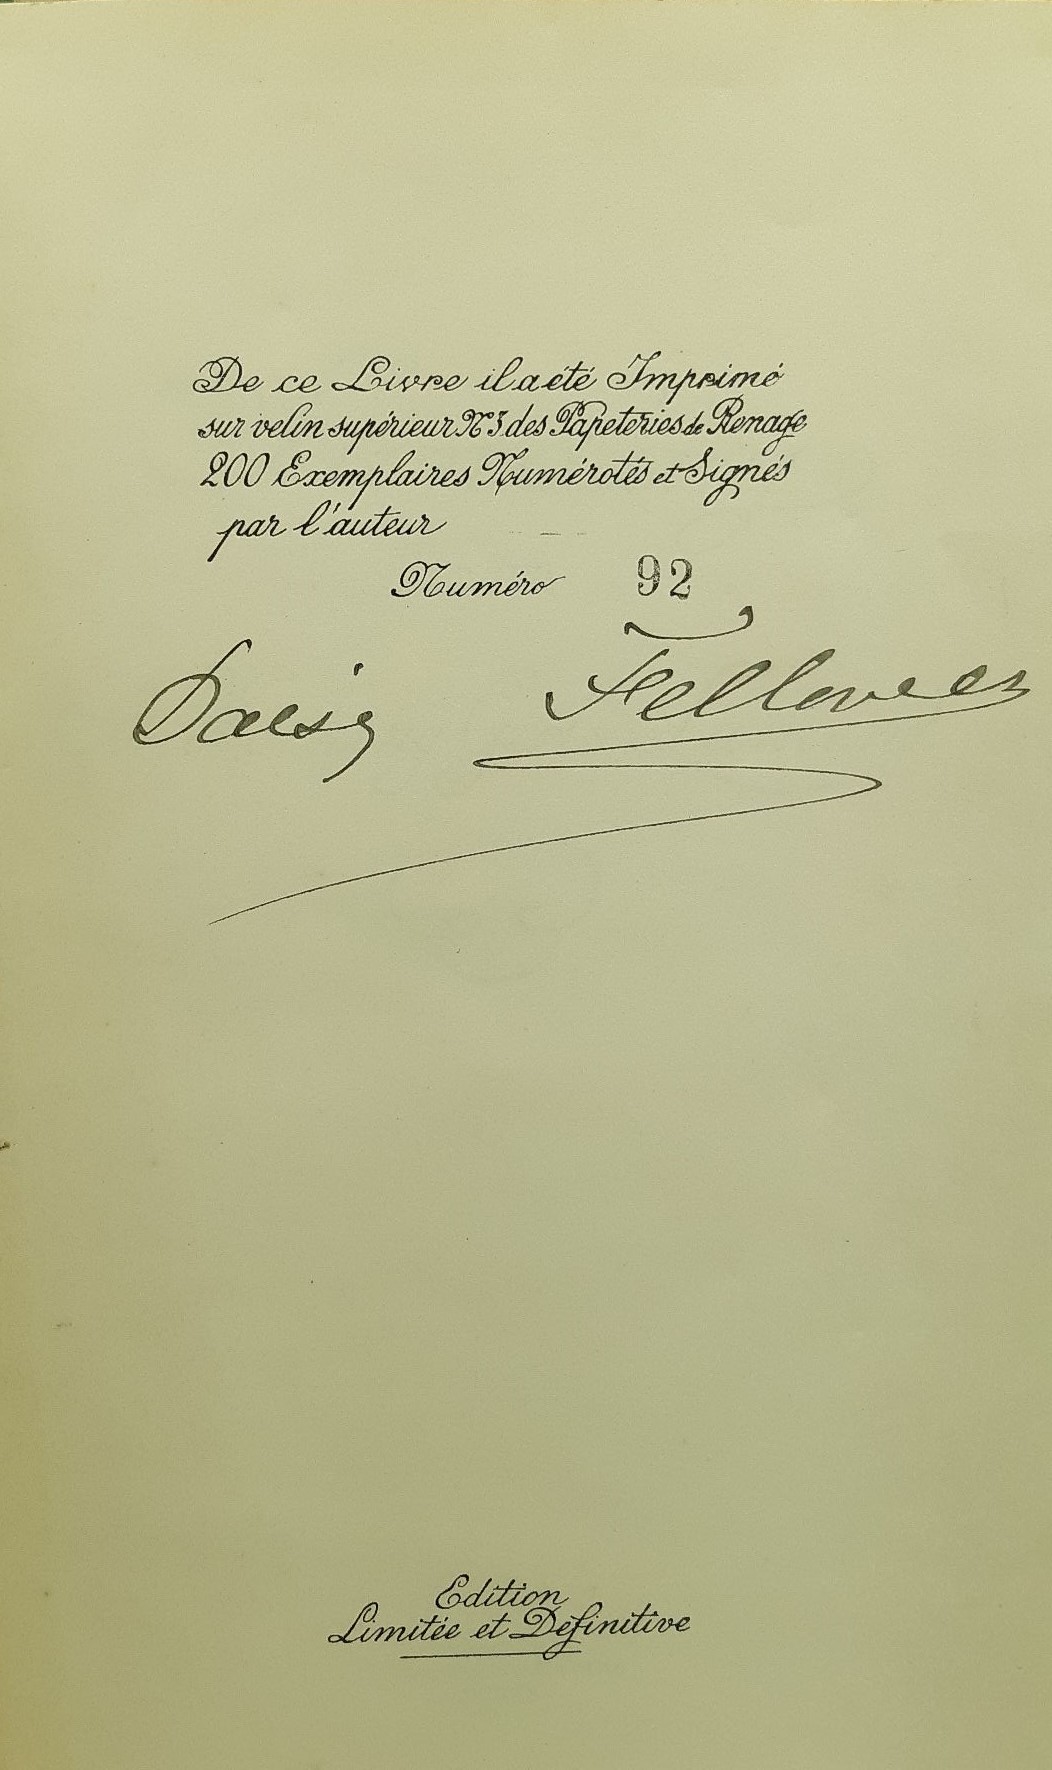 De ce Livre il a été Imprimé
sur velin supérieur N° 3 des Papeteries de Renage
200 Exemplaires Numérotés et Signés
par l'auteur
Numéro 92
Daisy Fellowes
Edition
Limitée et Definitive